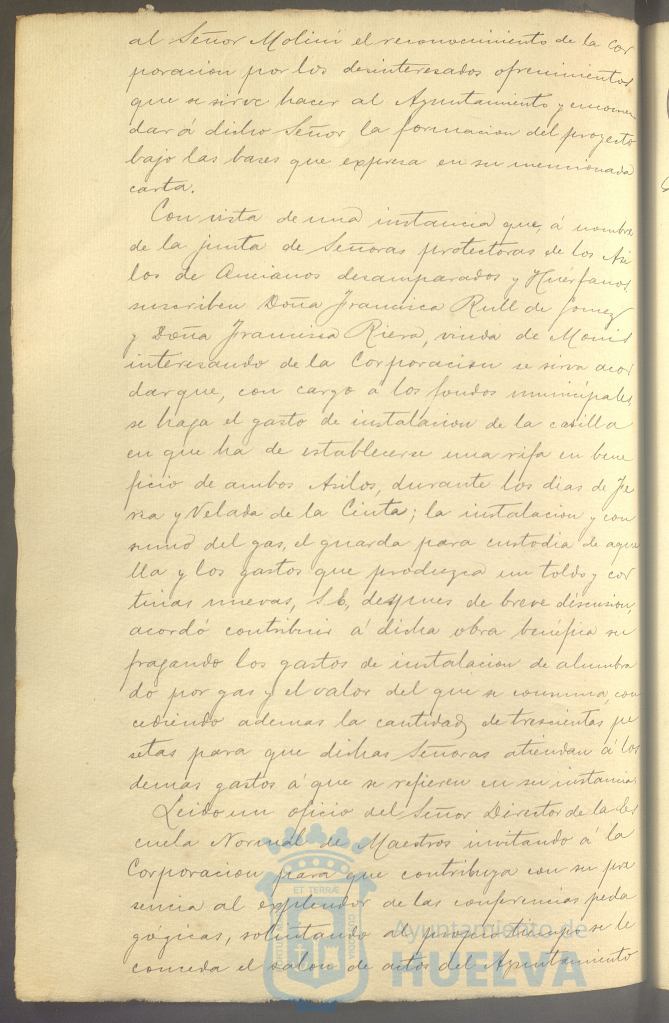 al Señor Molini el reconocimiento de la Cor
poracion por los desinteresados ofrecimientos
que se sirve hacer al Ayuntamiento y encomen
dar á dicho Señor la formacion del proyecto
bajo las bases que expresa en su mencionada
carta.
Con vista de una instancia que, á nombre
de la junta de Señoras protectoras de los Asi
los de Ancianos desamparados y Huérfanos,
suscriben Doña Francisca Rull de Gomez
y Doña Francisca Riera, viuda de
interesando de la Corporacion se sirva acor
dar que, con cargo á los fondos municipales,
se haga el gasto de instalacion de la casilla
en que ha de establecerse una rifa en bene
ficio de ambos Asilos, durante los dias de Fe
ria y Velada de la Cinta; la instalacion y con
sumo del gas, el guarda para custodia de aque
lla y los gastos que produzca un toldo y cor
tinas nuevas, S.E. despues de breve discusion,
acordó contribuir á dicha obra benéfica su
fragando los gastos de instalacion de alumbra
do por gas y el valor del que se consuma, con
cediendo ademas la cantidad de trescientas pe
setas para que dichas Señoras atiendan á los
demas gastos á que se refieren en su instancia.
Leido un oficio del Señor Director de la Es
cuela Normal de Maestros invitando á la
Corporacion para que contribuya con su pre
sencia al explendor de las conferencias peda
gógicas, solicitando al propio tiempo se le
conceda el salon de actos del Ayuntamiento
ET TERRÆ
Ayuntamiento de
HUELVA